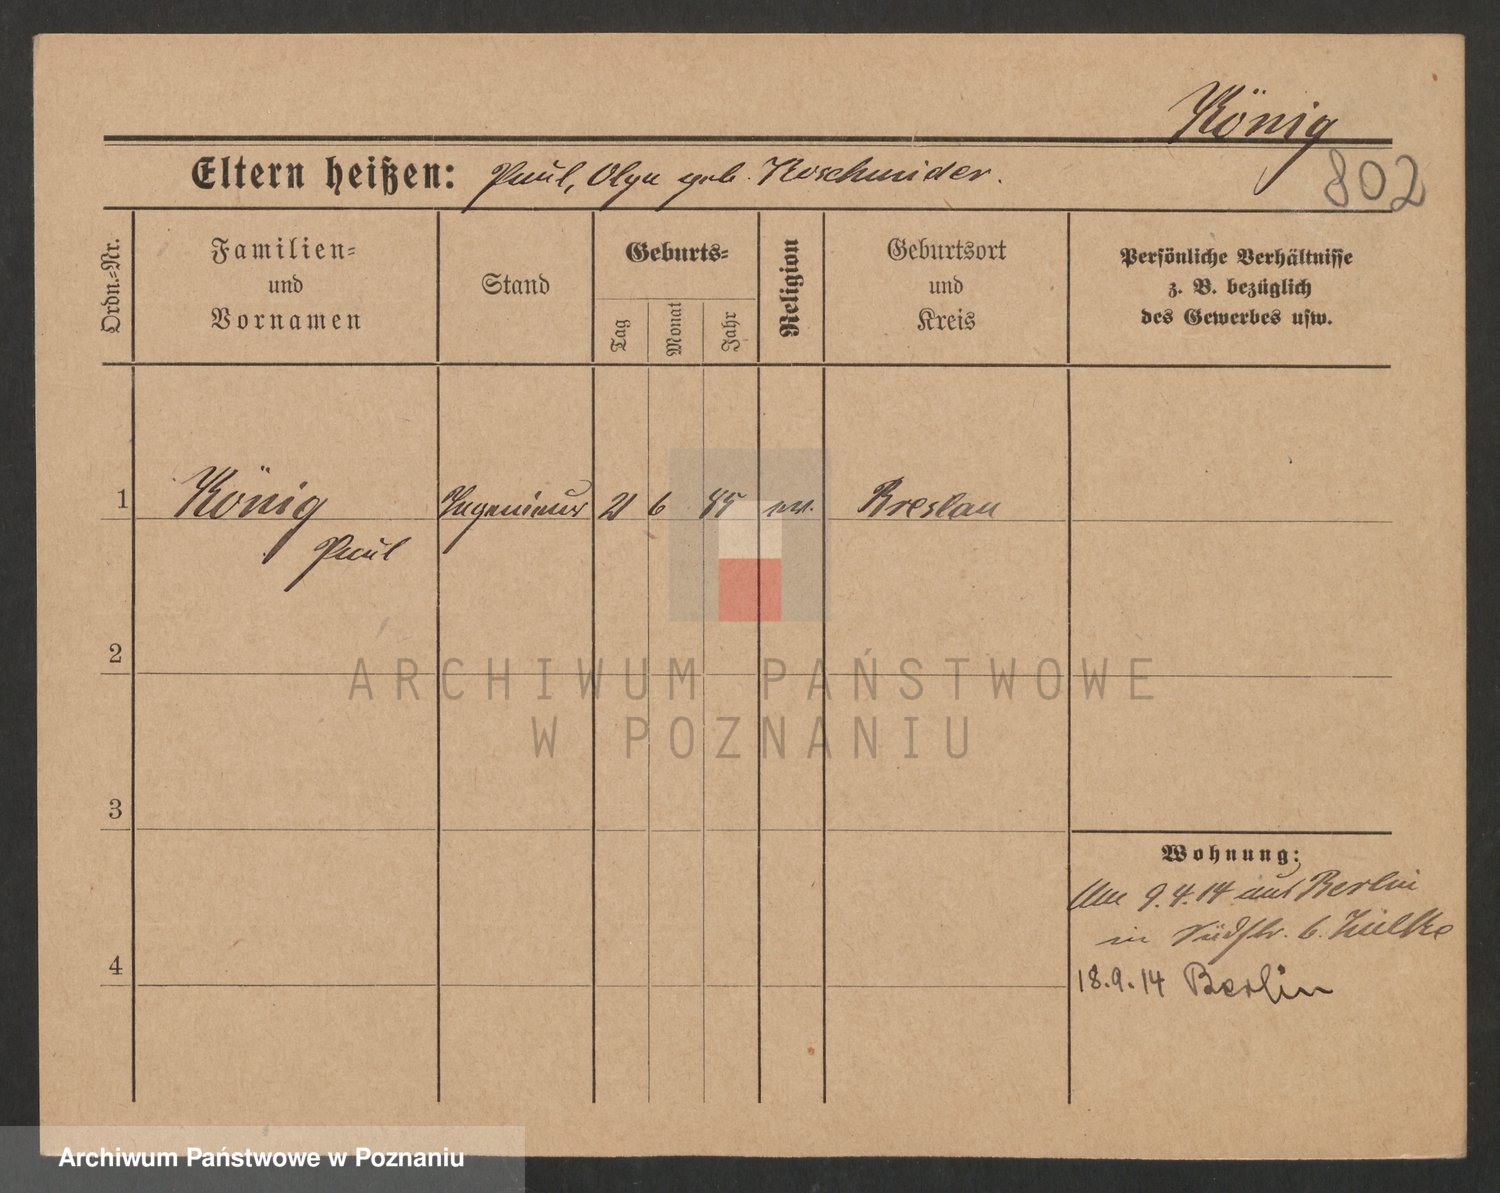 König
802
Eltern heißen: Paul, Olga geb. Koschmider.
Ordn.-Nr.
Familien-
und
Vornamen
Stand
Geburts-
Tag
Monat
Jahr
Religion
Geburtsort
und
Kreis
Persönliche Verhältnisse
z. B. bezüglich
des Gewerbes usw.
1 König Ingenieur 21 6 85 ev. Breslau
Paul
2
ARCHIWUM PAŃSTWOWE
W POZNANIU
3
Wohnung:
Am 9.4.14 aus Berlin
in Südstr. b.
4
18.9.14 Berlin
Archiwum Państwowe w Poznaniu